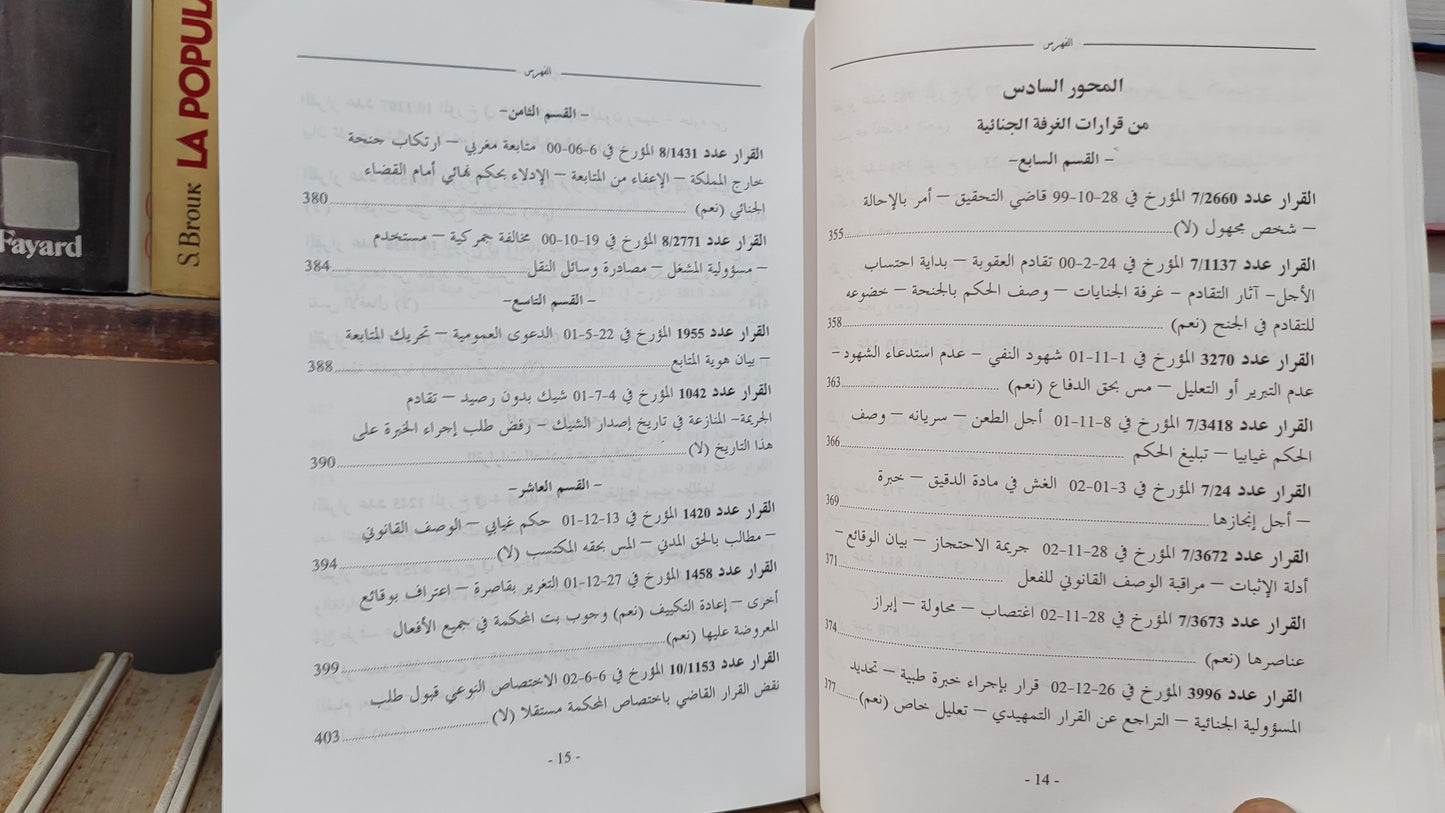 الفهرس
المحور السادس
من قرارات الغرفة الجنائية
– القسم السابع–
القرار عدد 7/2660 المؤرخ في 28-10-99 قاضي التحقيق – أمر بالإحالة
– شخص مجهول (لا)........355
القرار عدد 7/1137 المؤرخ في 24-2-00 تقادم العقوبة – بداية احتساب
الأجل– آثار التقادم – غرفة الجنايات – وصف الحكم بالجنحة – خضوعه
للتقادم في الجنح (نعم)........358
القرار عدد 3270 المؤرخ في 1-11-01 شهود النفي – عدم استدعاء الشهود–
عدم التبرير أو التعليل – مس بحق الدفاع (نعم)........363
القرار عدد 7/3418 المؤرخ في 8-11-01 أجل الطعن – سريانه – وصف
الحكم غيابيا – تبليغ الحكم........366
القرار عدد 7/24 المؤرخ في 3-01-02 الغش في مادة الدقيق – خبرة
– أجل إنجازها........369
القرار عدد 7/3672 المؤرخ في 28-11-02 جريمة الاحتجاز – بيان الوقائع–
أدلة الإثبات – مراقبة الوصف القانوني للفعل........371
القرار عدد 7/3673 المؤرخ في 28-11-02 اغتصاب – محاولة – إبراز
عناصرها (نعم)........374
القرار عدد 3996 المؤرخ في 26-12-02 قرار بإجراء خبرة طبية – تحديد
المسؤولية الجنائية – التراجع عن القرار التمهيدي – تعليل خاص (نعم)........377
- 14 -
الفهرس
– القسم الثامن–
القرار عدد 8/1431 المؤرخ في 6-06-00 متابعة مغربي – ارتكاب جنحة
خارج المملكة – الإعفاء من المتابعة – الإدلاء بحكم نهائي أمام القضاء
الجنائي (نعم)........380
القرار عدد 8/2771 المؤرخ في 19-10-00 مخالفة جمركية – مستخدم
– مسؤولية المشغل – مصادرة وسائل النقل........384
– القسم التاسع–
القرار عدد 1955 المؤرخ في 22-5-01 الدعوى العمومية – تحريك المتابعة
– بيان هوية المتابع........388
القرار عدد 1042 المؤرخ في 4-7-01 شيك بدون رصيد – تقادم
الجريمة– المنازعة في تاريخ إصدار الشيك – رفض طلب إجراء الخبرة على
هذا التاريخ (لا)........390
– القسم العاشر–
القرار عدد 1420 المؤرخ في 13-12-01 حكم غيابي – الوصف القانوني
– مطالب بالحق المدني – المس بحقه المكتسب (لا)........394
القرار عدد 1458 المؤرخ في 27-12-01 التغرير بقاصرة – اعتراف بوقائع
أخرى – إعادة التكييف (نعم) وجوب بت المحكمة في جميع الأفعال
المعروضة عليها (نعم)........399
القرار عدد 10/1153 المؤرخ في 6-6-02 الاختصاص النوعي قبول طلب
نقض القرار القاضي باختصاص المحكمة مستقلا (لا)........403
- 15 -
Fayard
S. BROUK LA POPUL